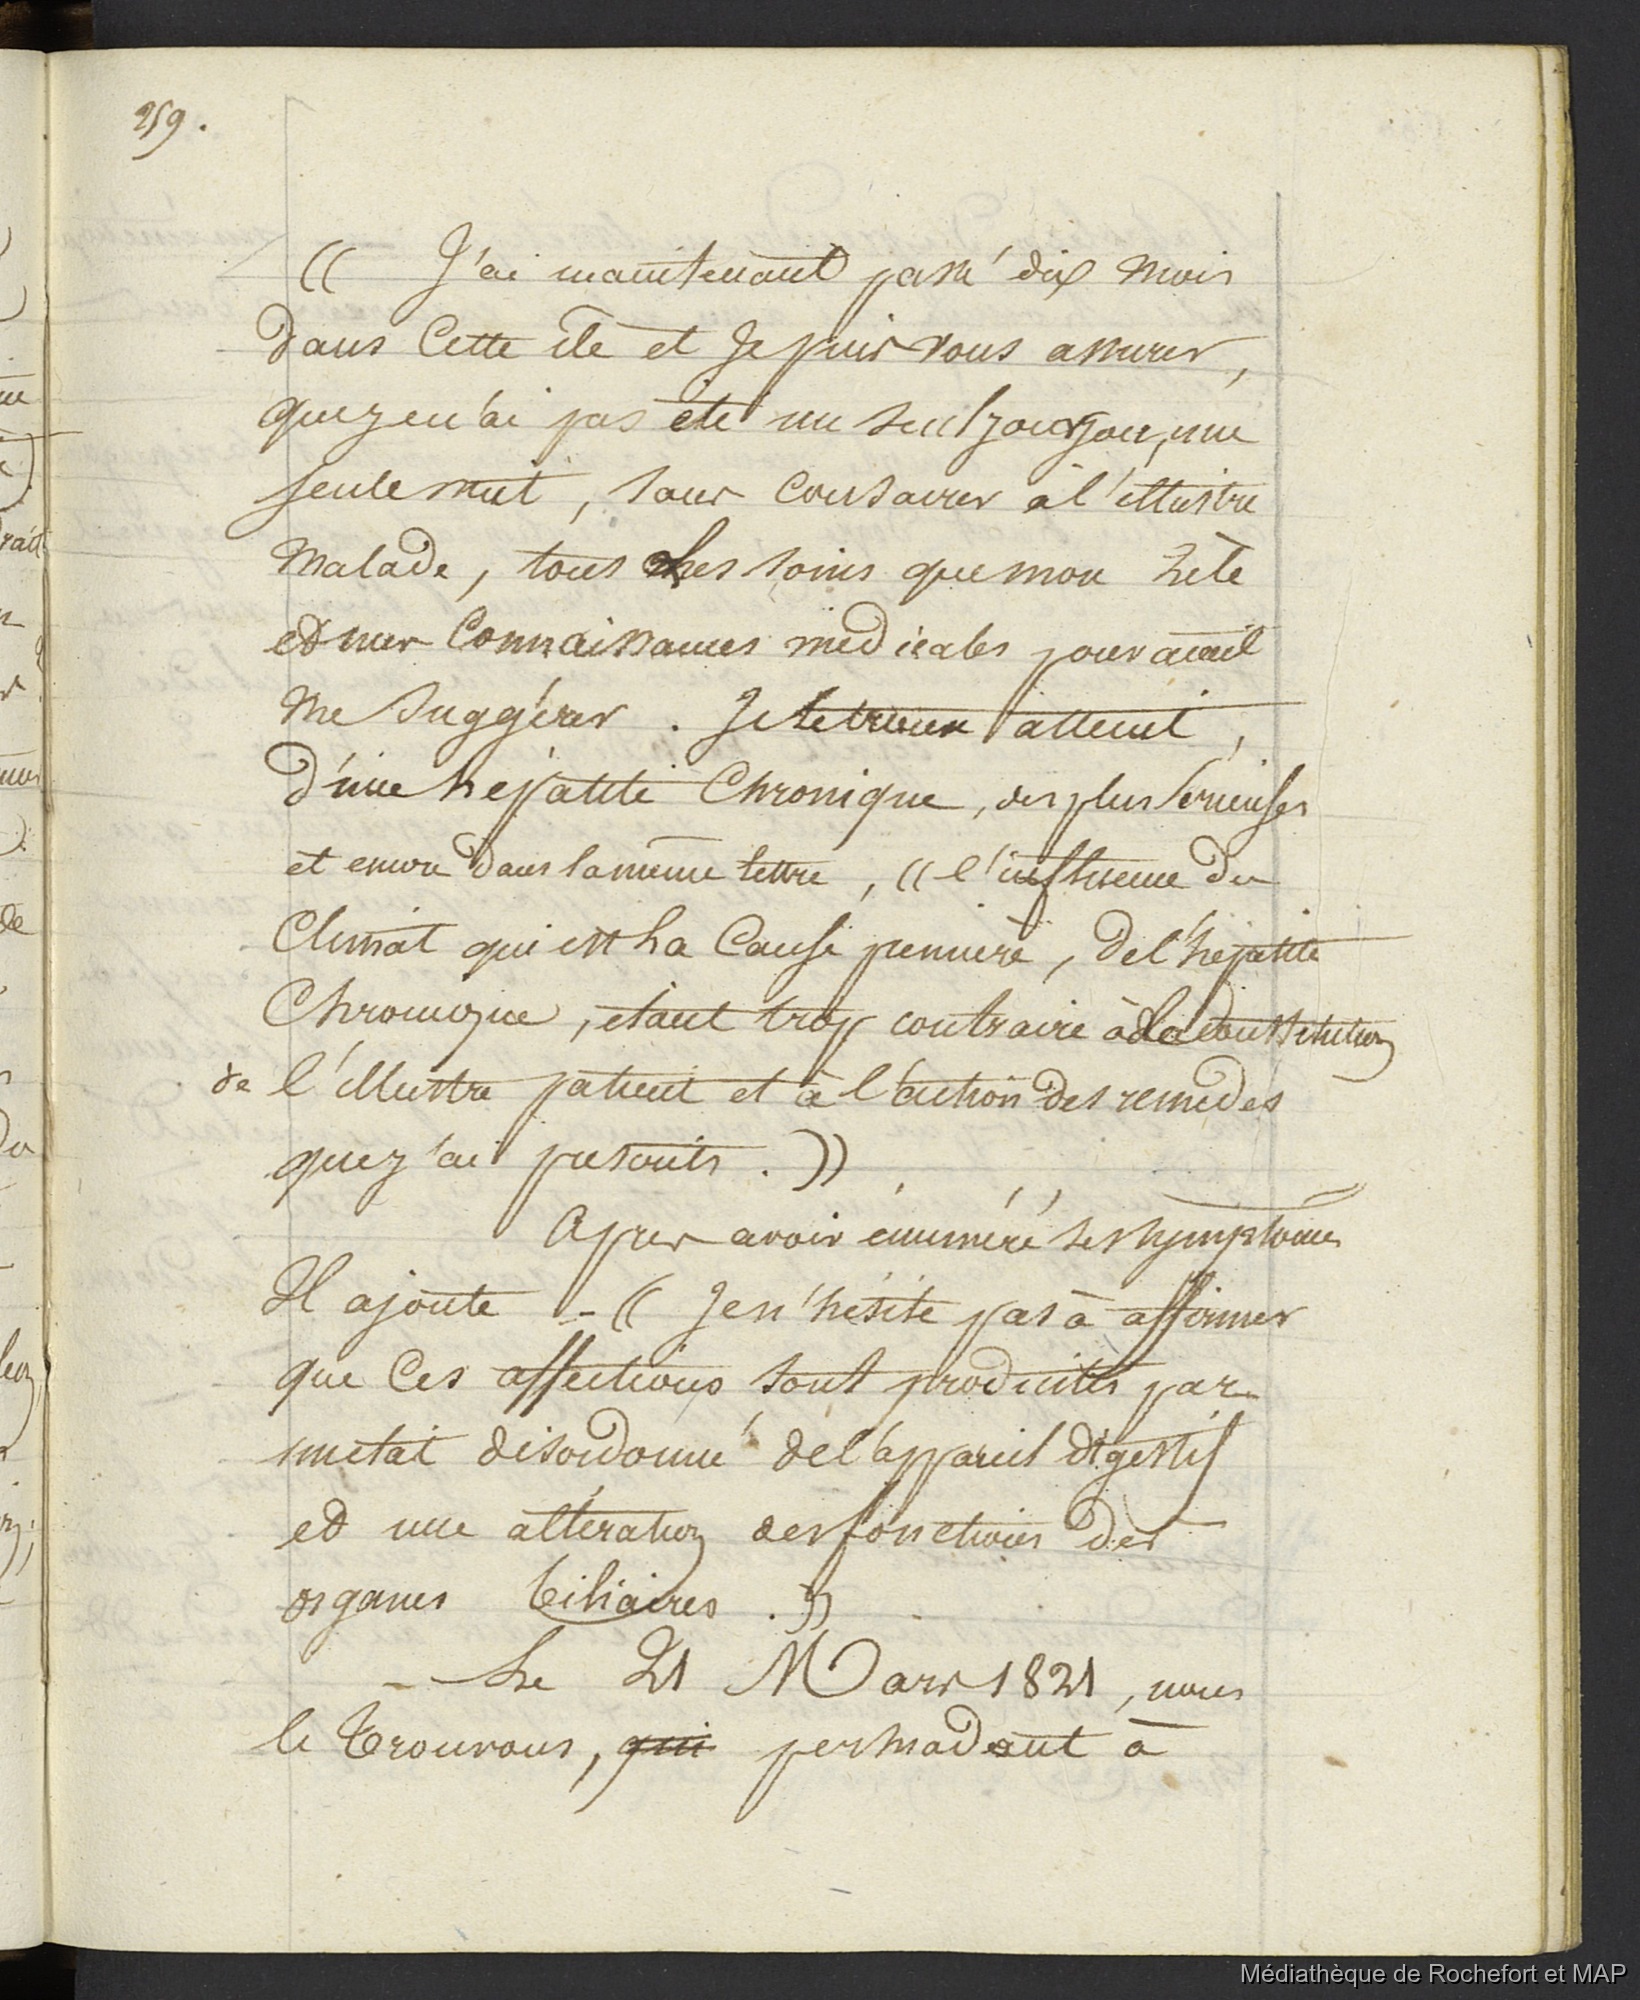 259.
(( J'ai maintenant passé dix mois
dans Cette île et Je puis vous assurer,
que je n'ai pas été un seul jour, une
seule nuit, sans consacrer à l'illustre
Malade, tous les soins que mon zèle
et mes Connaissances médicales pouvaient
me suggérer. Je le trouve atteint,
d'une hépatite Chronique, des plus serieuses
et encore dans la même lettre, (( l'influence du
Climat qui est la Cause première, de l'hépatite
Chronique, étant trop contraire à la constitution
de l'illustre patient et à l'action des remèdes
que j'ai prescrits. ))
Après avoir énuméré les symptômes
Il ajoute - (( Je n'hésite pas à affirmer
que Ces affections sont produites par
un état désordonné de l'appareil digestif
et une altération des fonctions des
organes biliaires. ))
- Le 21 Mars 1821, nous
le trouvons, qui persuadant à
Médiathèque de Rochefort et MAP